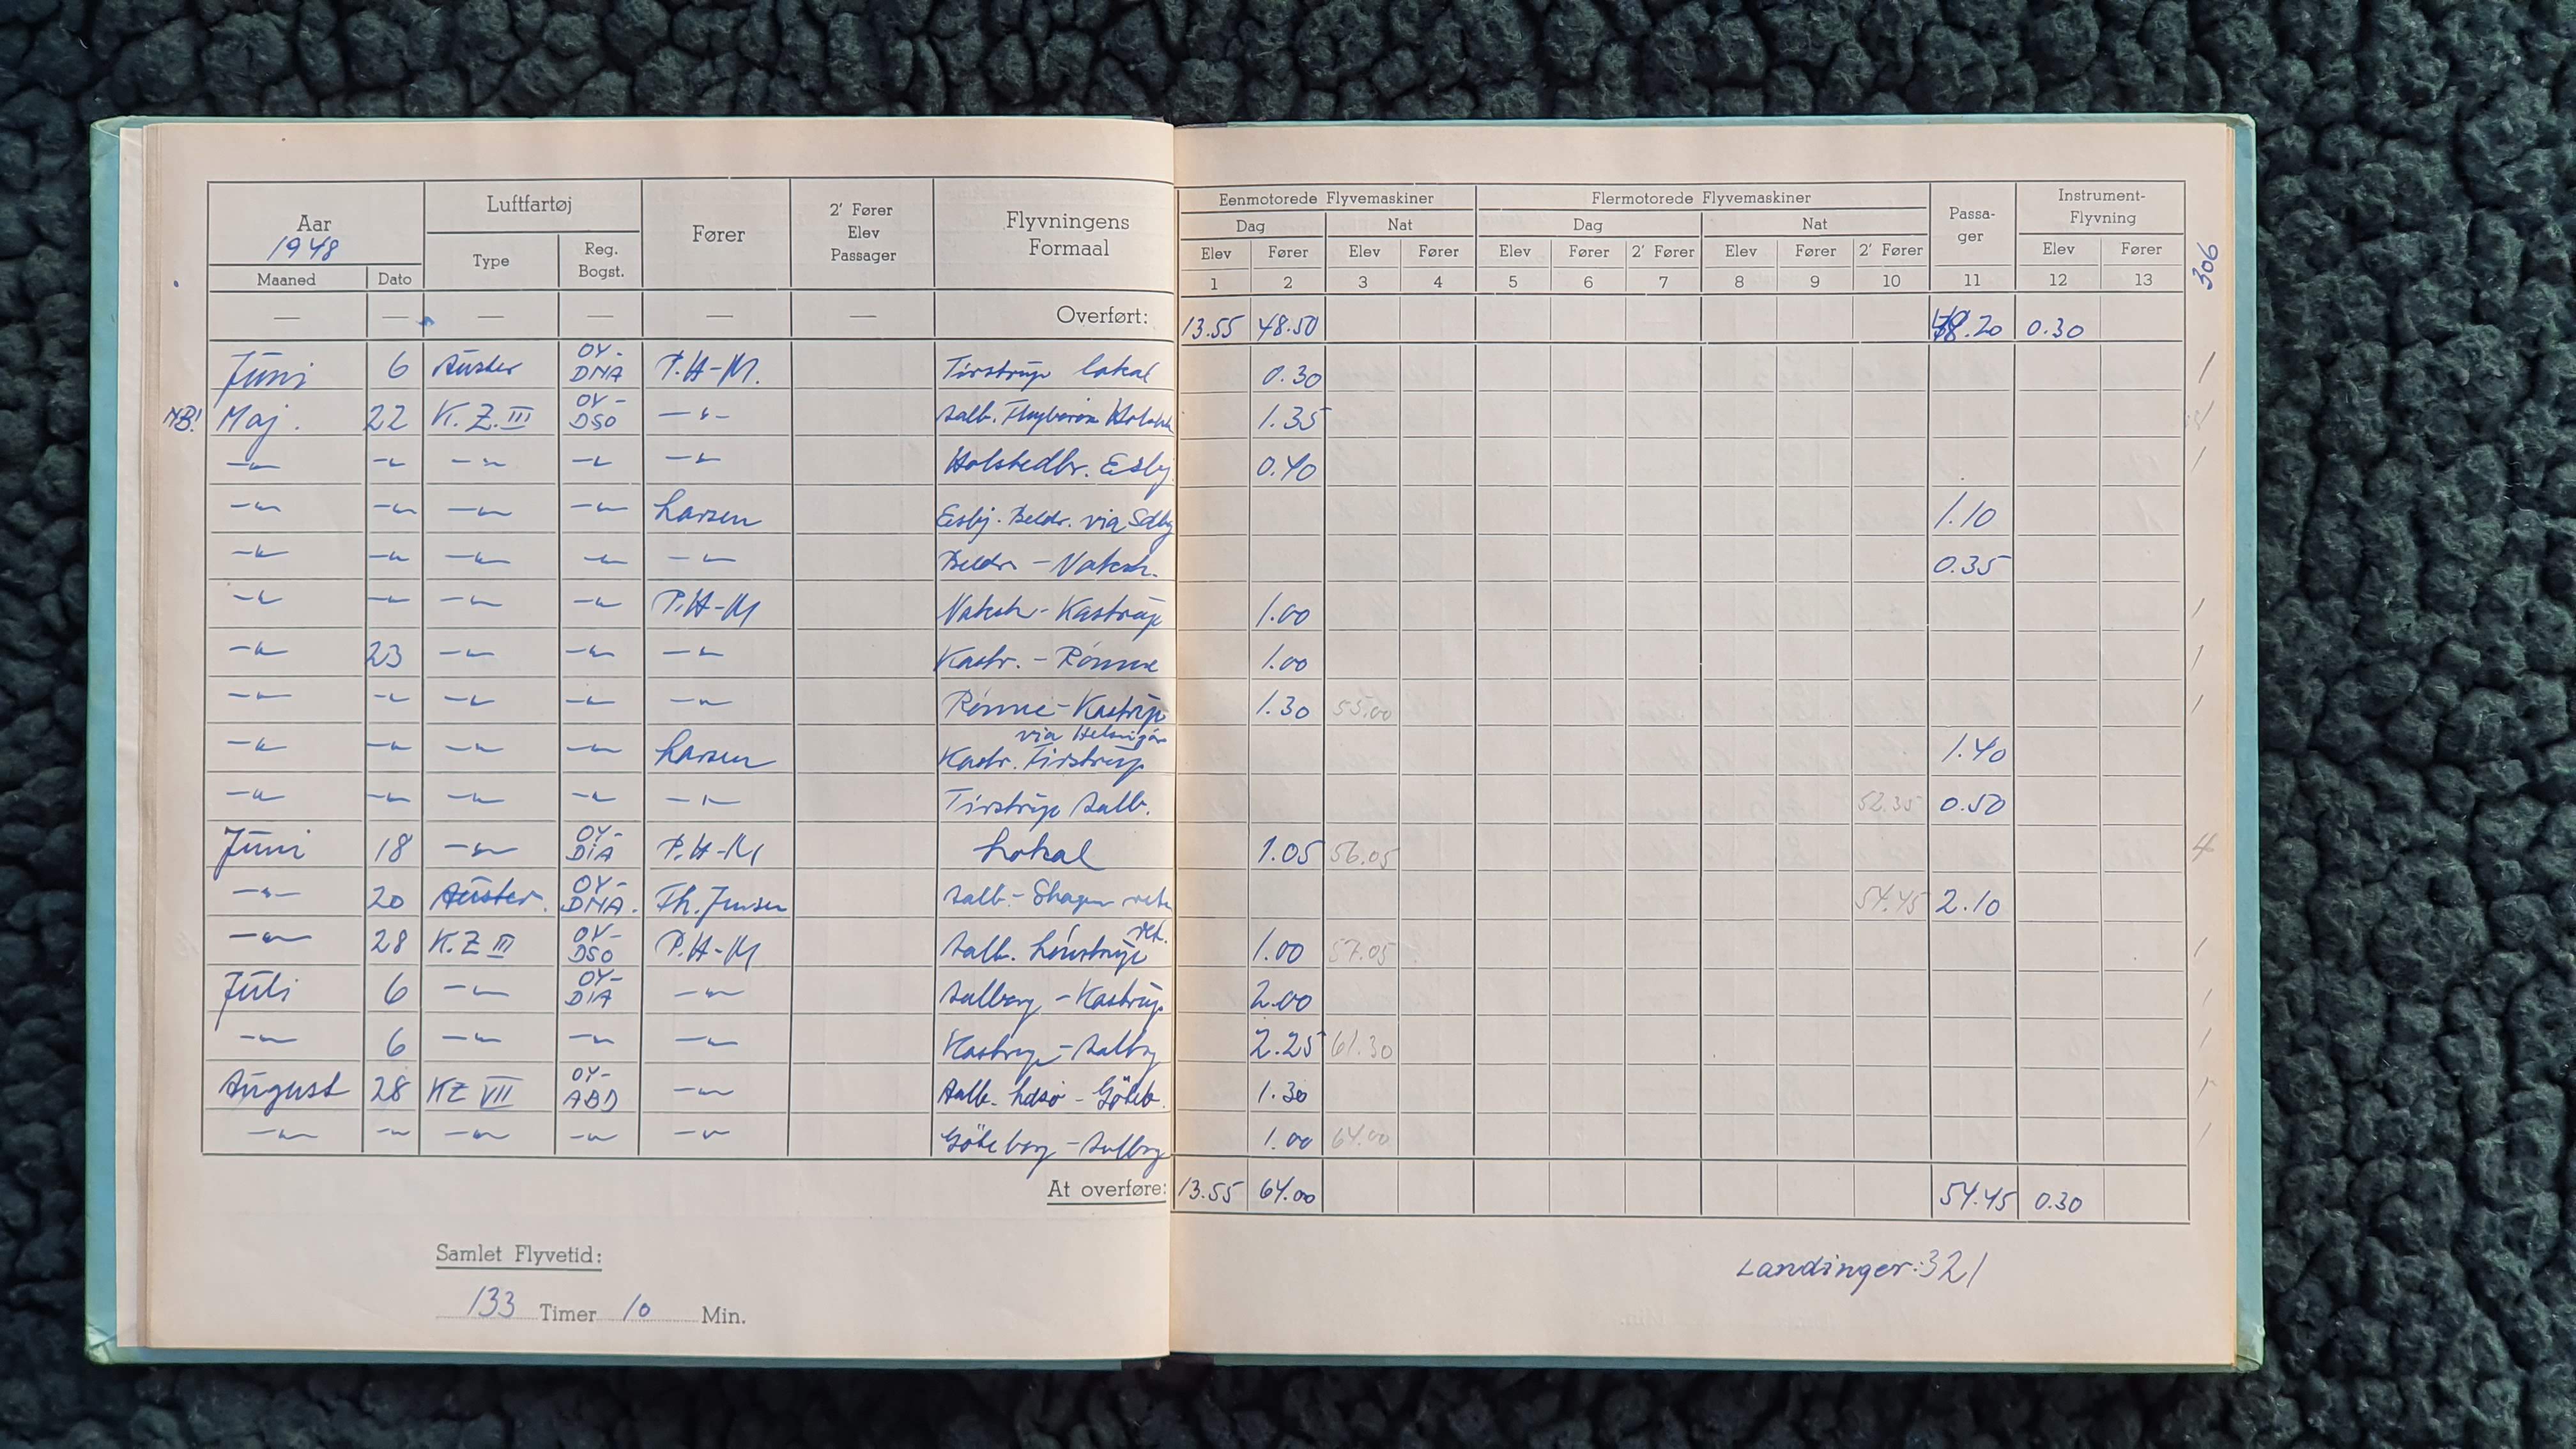 Aar 1948
Luftfartøj
Fører
2' Fører Elev Passager
Flyvningens Formaal
Maaned Dato Type Reg. Bogst.
Eenmotorede Flyvemaskiner Flermotorede Flyvemaskiner Passa-ger Instrument-Flyvning
Dag Nat Dag Nat
Elev Fører Elev Fører Elev Fører 2' Fører Elev Fører 2' Fører Elev Fører
1 2 3 4 5 6 7 8 9 10 11 12 13
306
— — — — — — Overført: 13.55 48.50 .20 0.30
Juni 6 Auster OY-DNA P.H-M. Tirstrup lokal 0.30 1
NB! Maj. 22 K.Z.III OY-DSO —"— Aalb. Thyborøn 1.35 1
—"— —"— —"— —"— —"— Holstedbr. Esbj. 0.40 1
—"— —"— —"— —"— Larsen Esbj. Beldr. via 1.10
—"— —"— —"— —"— —"— Beldr. - Naksk. 0.35
—"— —"— —"— —"— P.H-M Naksk. - Kastrup 1.00 1
—"— 23 —"— —"— —"— Kastr. - Rønne 1.00 1
—"— —"— —"— —"— —"— Rønne - Kastrup 1.30 55.00 1
—"— —"— —"— —"— Larsen via Helsingør Kastr. Tirstrup 1.40
—"— —"— —"— —"— —"— Tirstrup Aalb. 52.35 0.50
Juni 18 —"— OY-DIA P.H-M Lokal 1.05 56.05 4
—"— 20 Auster. OY-DNA. Th. Jensen Aalb. - Skagen retu 54.45 2.10
—"— 28 K.Z III OY-DSO P.H-M Aalb. Lønstrup ret. 1.00 57.05 1
Juli 6 —"— OY-DIA —"— Aalborg - Kastrup 2.00 1
—"— 6 —"— —"— —"— Kastrup - Aalborg 2.25 61.30 1
August 28 KZ VII OY-ABD —"— Aalb. Læsø - Göteb. 1.30 1
—"— —"— —"— —"— —"— Göteborg - Aalborg 1.00 64.00 1
At overføre: 13.55 64.00 54.45 0.30
Samlet Flyvetid:
133 Timer 10 Min.
Landinger: 321